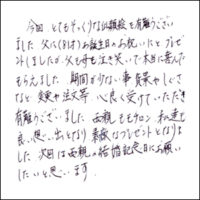 今回 とてもそっくりな似顔絵を有難うござい
ました 父に(81才)お誕生日のお祝いとプレゼ
ントしましたが父も母も泣き笑いで本当に喜んだ
もらえました 期間が少ない事 背景やしぐさ
など 変更や注文等 心良く受けていただき
有難うございました 両親もモチロン 私達も
良い思い出となり 素敵なプレゼントとなりま
した 次回は両親の結婚記念日にお願い
したいと思います